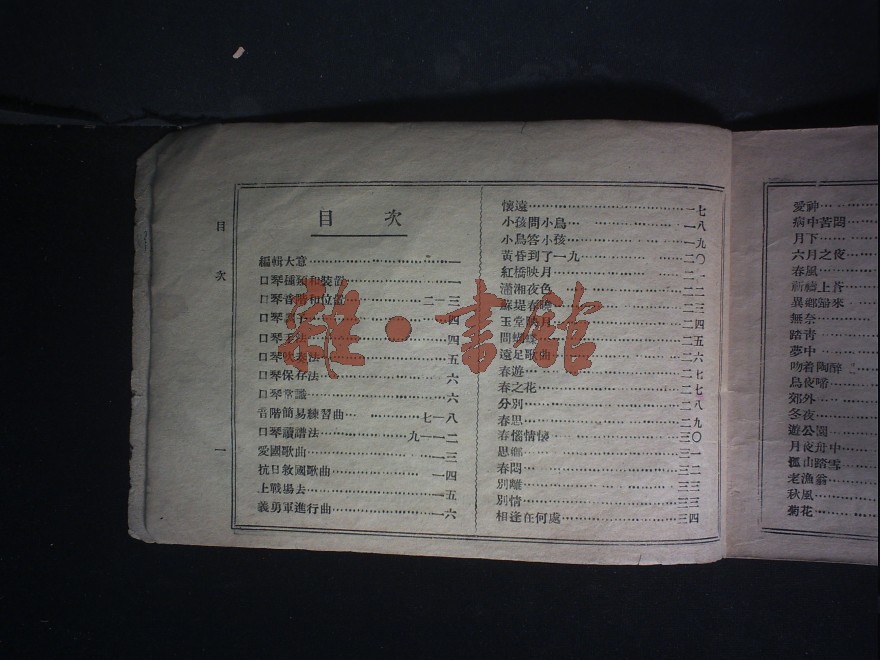 目次
一
目　次
編輯大意…………一
口琴種類和裝置…………一
口琴音階和位置…………二—三
口琴…………四
口琴…法…………四
口琴吹奏法…………五
口琴保存法…………六
口琴常識…………六
音階簡易練習曲…………七—八
口琴讀譜法…………九—一二
愛國歌曲…………一三
抗日救國歌曲…………一四
上戰場去…………一五
義勇軍進行曲…………一六
懷遠…………一七
小孩問小鳥…………一八
小鳥答小孩…………一九
黃昏到了—一九…………二〇
紅橋映月…………二一
瀟湘夜色…………二二
蘇堤春曉…………二三
玉堂…月…………二四
間蝴蝶…………二五
遠足歌曲…………二六
春遊…………二七
春之花…………二七
分別…………二八
春思…………二九
春惱情懷…………三〇
思鄉…………三一
春悶…………三二
別離…………三三
別情…………三三
相逢在何處…………三四
愛神
病中苦悶
月下
六月之夜
春風
祈禱上蒼
異鄉歸來
無奈
踏青
夢中
吻着陶醉
烏夜啼
郊外
冬夜
遊公園
月夜舟中
孤山踏雪
老漁翁
秋風
菊花
雜·書館